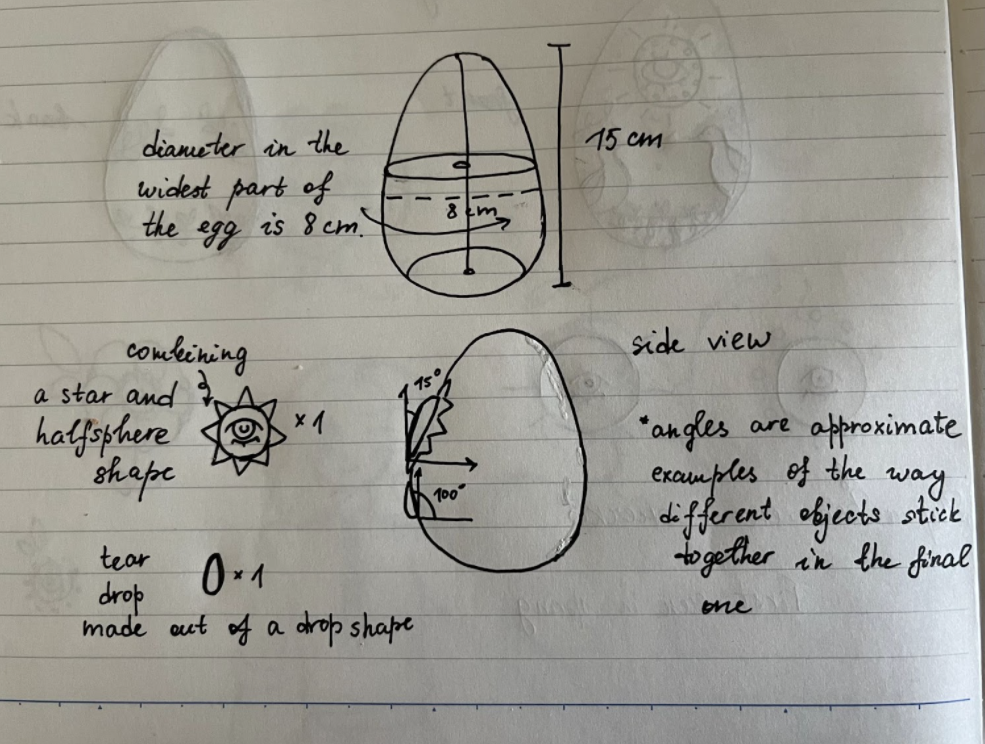 diameter in the
widest part of
the egg is 8 cm.
8 cm
15 cm
combining
a star and
halfsphere
shape
× 1
15°
100°
side view
*angles are approximate
examples of the way
different objects stick
together in the final
one
tear
drop
× 1
made out of a drop shape